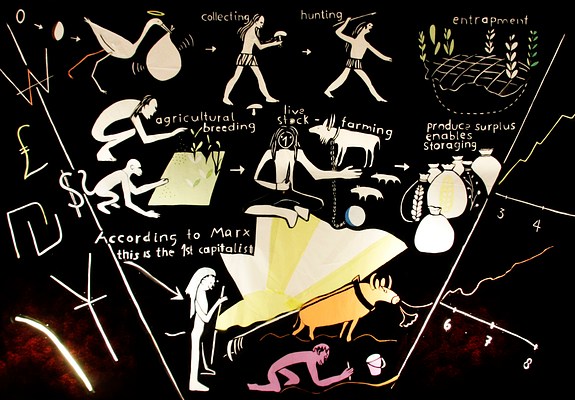 collecting
hunting
entrapment
agricultural
breeding
live
stock -
farming
produce surplus
enables
storaging
₩
£
$
3
4
According to Marx
this is the 1st capitalist
¥
6
7
8